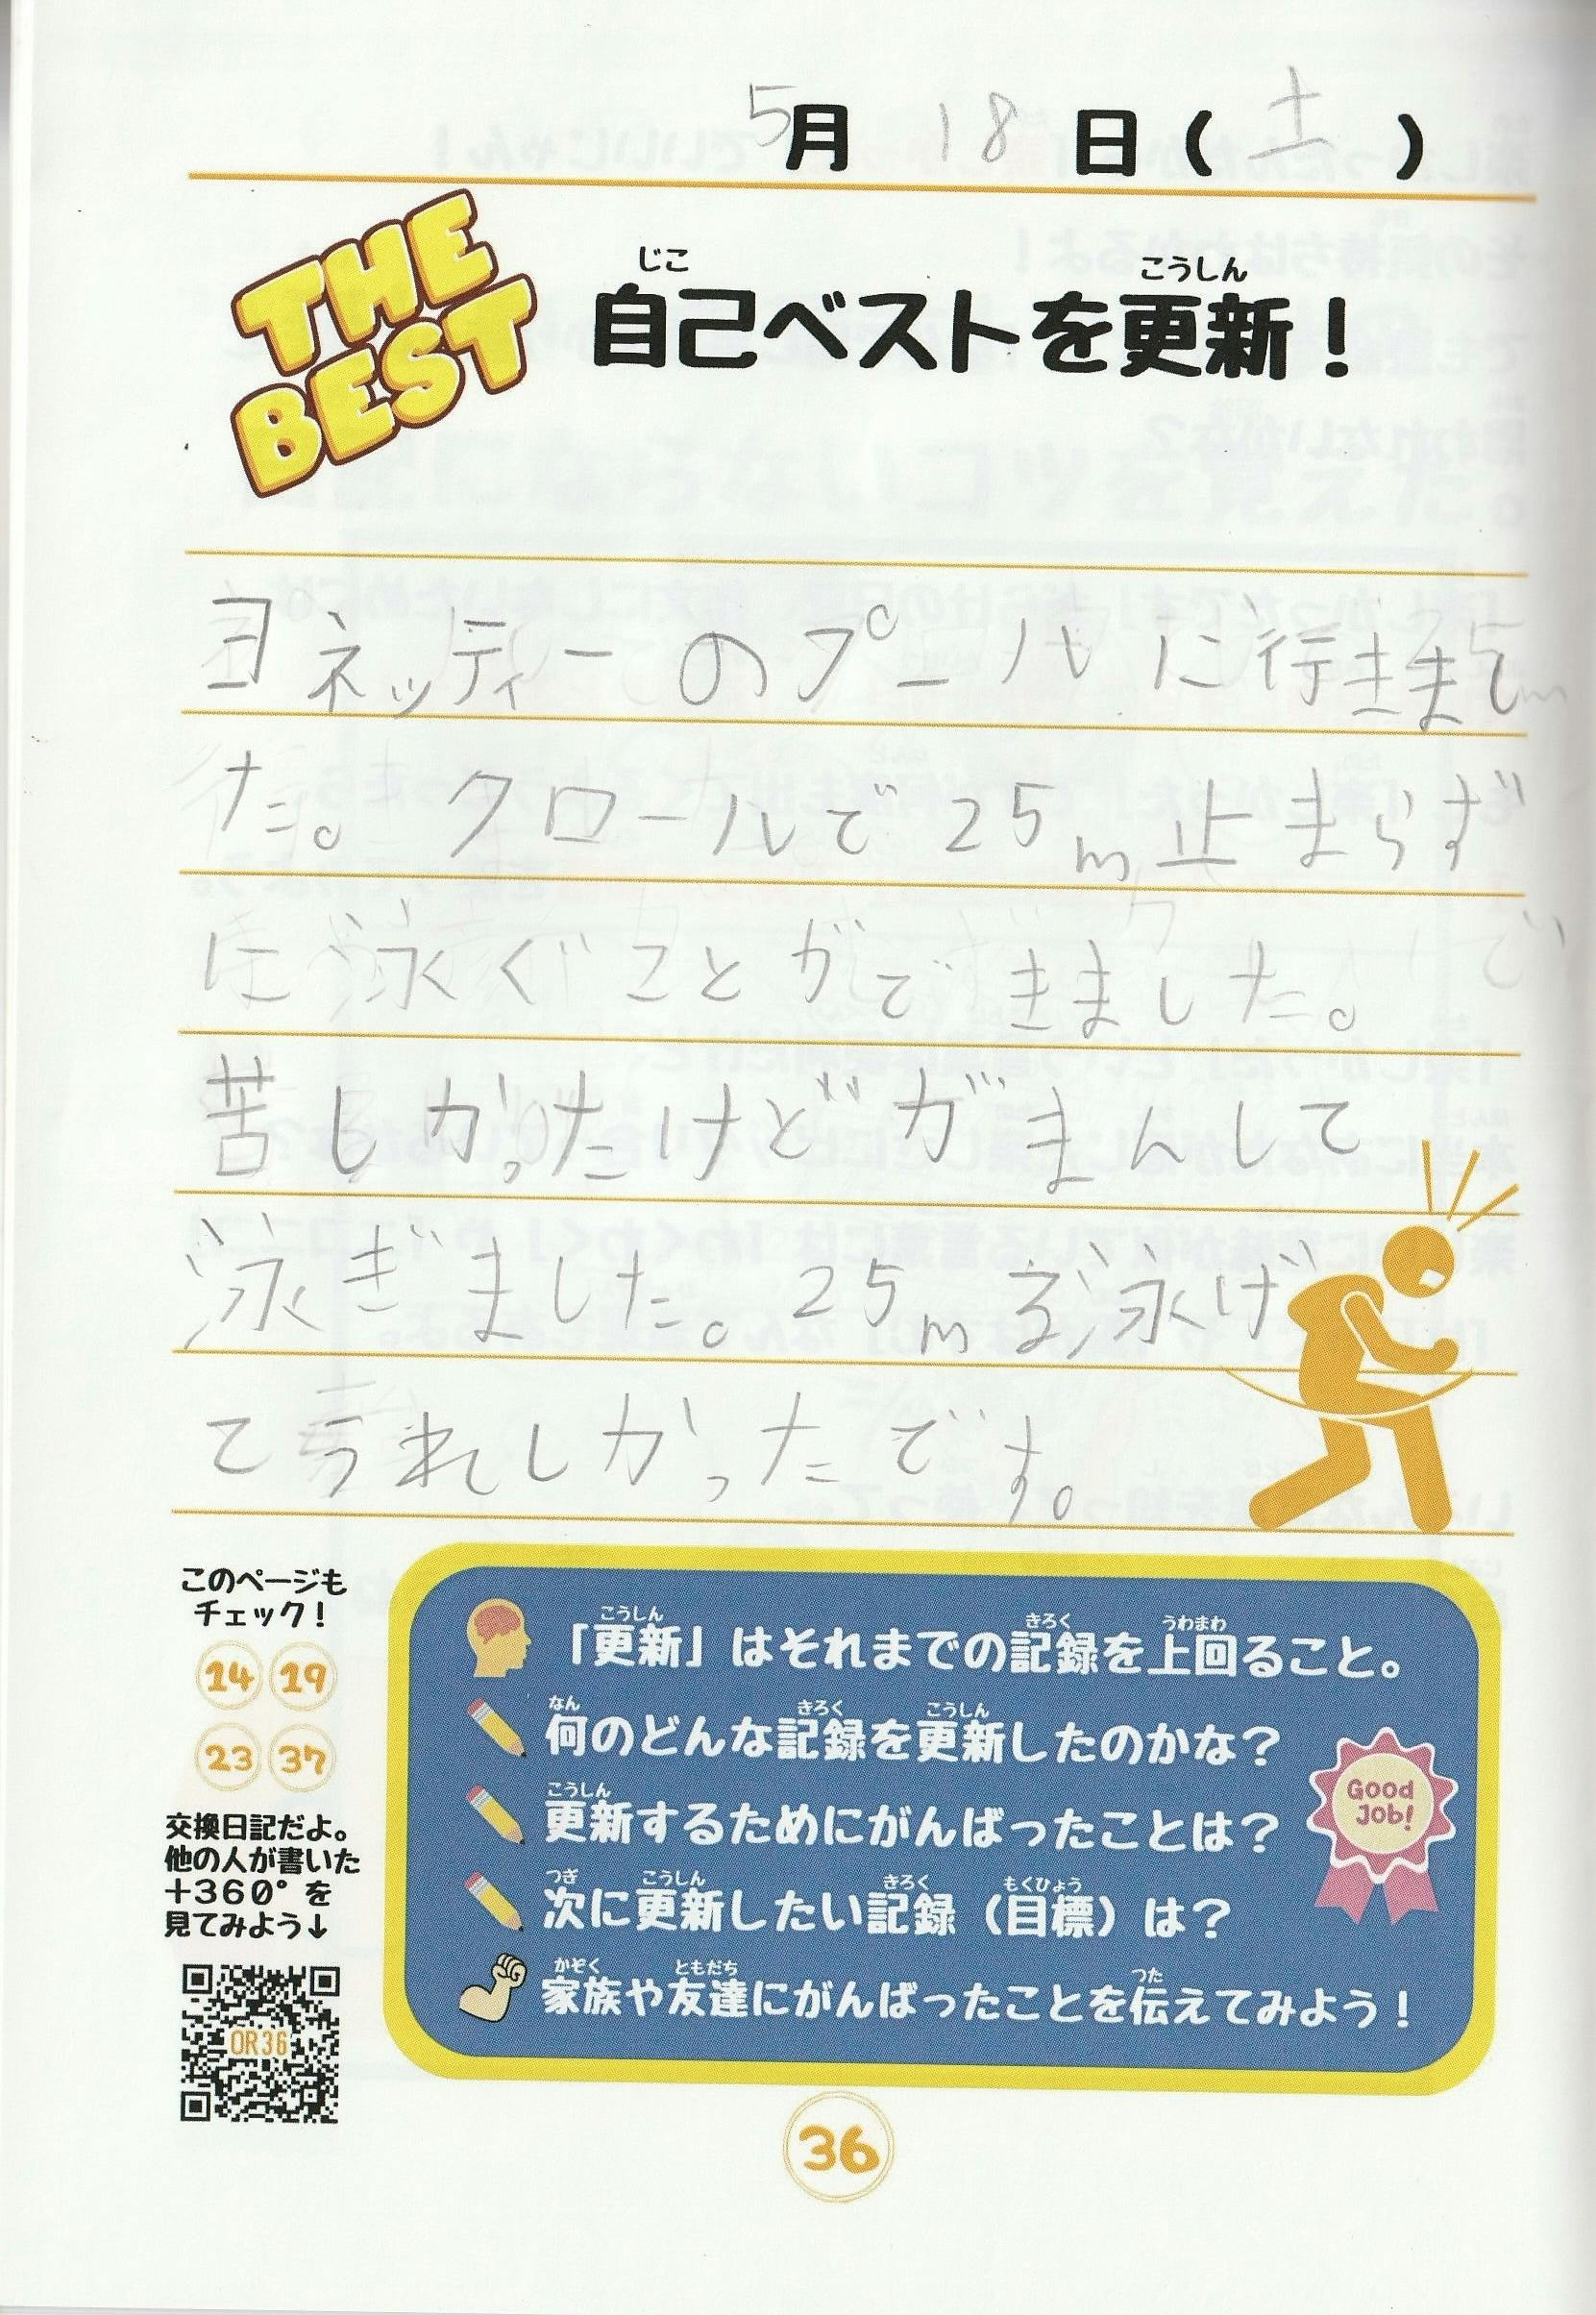 5月 18日(土)
THE
BEST
じこ こうしん
自己ベストを更新!
ヨネッティーのプールに行きまし
た。クロールで25m止まらず
に泳ぐことができました。
苦しかったけどがまんして
泳ぎました。25mを泳げ
てうれしかったです。
このページも
チェック!
14 19
23 37
交換日記だよ。
他の人が書いた
+360°を
見てみよう↓
OR36
こうしん きろく うわまわ
「更新」はそれまでの記録を上回ること。
なん きろく こうしん
何のどんな記録を更新したのかな?
こうしん
更新するためにがんばったことは?
つぎ こうしん きろく もくひょう
次に更新したい記録(目標)は?
かぞく ともだち つた
家族や友達にがんばったことを伝えてみよう!
Good
Job!
36